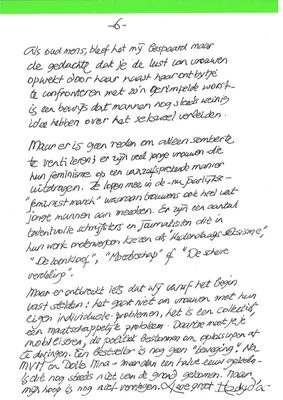 -6-
Als oud mens, bleef het mij bespaard maar
de gedachte dat je de lust van vrouwen
opwekt door haar naast haar ontbijtje
te confronteren met zo'n gerimpelde worst
is een bewijs dat mannen nog steeds weinig
idee hebben over het seksueel verlangen.
Maar er is geen reden om alleen somberte
te ventileren: er zijn veel jonge vrouwen die
hun feminisme op een vanzelfsprekende manier
uitdragen. Ze lopen mee in de nu jaarlijkse
"feminist march" waaraan trouwens ook heel wat
jonge mannen aan meedoen. Er zijn een aantal
talentvolle schrijfsters en journalisten die in
hun werk onderwerpen kiezen als "Hedendaags seksisme,"
"De loonkloof", "Moederschap" of "De scheve
verdeling".
Maar er ontbreekt iets dat wij vanaf het begin
vast stelden: het gaat niet om vrouwen met hun
eigen individuele problemen, het is een collectief,
een maatschappelijk probleem. Daartoe moet je je
mobiliseren, de politiek bestormen om oplossingen af
te dwingen. Een bestseller is nog geen "beweging". Na
MVM en Dolle Mina - meer dan een halve eeuw geleden -
is die nog steeds niet van de grond gekomen. Maar
mijn hoop is nog niet vervlogen. groet Hedy